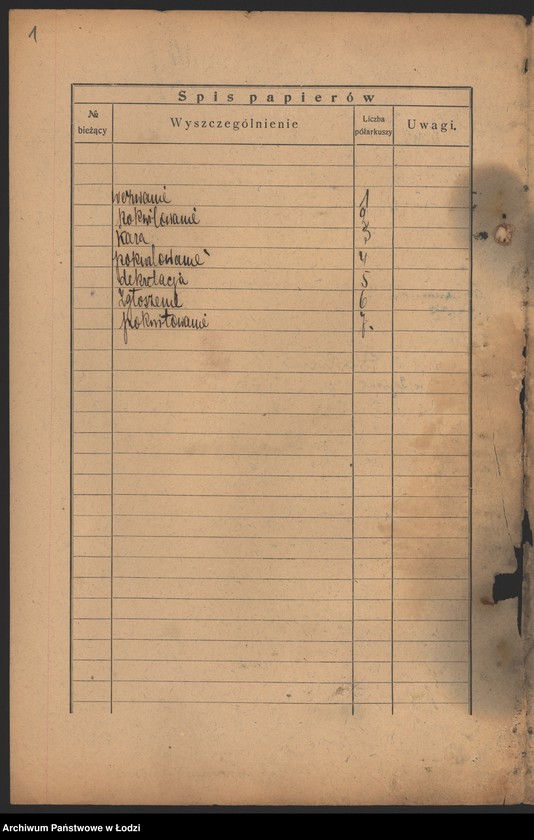 1
Spis papierów
№ bieżący Wyszczególnienie Liczba półarkuszy Uwagi.
wezwanie 1
pokwitowanie 2
kara 3
pokwitowanie 4
deklaracja 5
Zgłoszenie 6
pokwitowanie 7.
Archiwum Państwowe w Łodzi